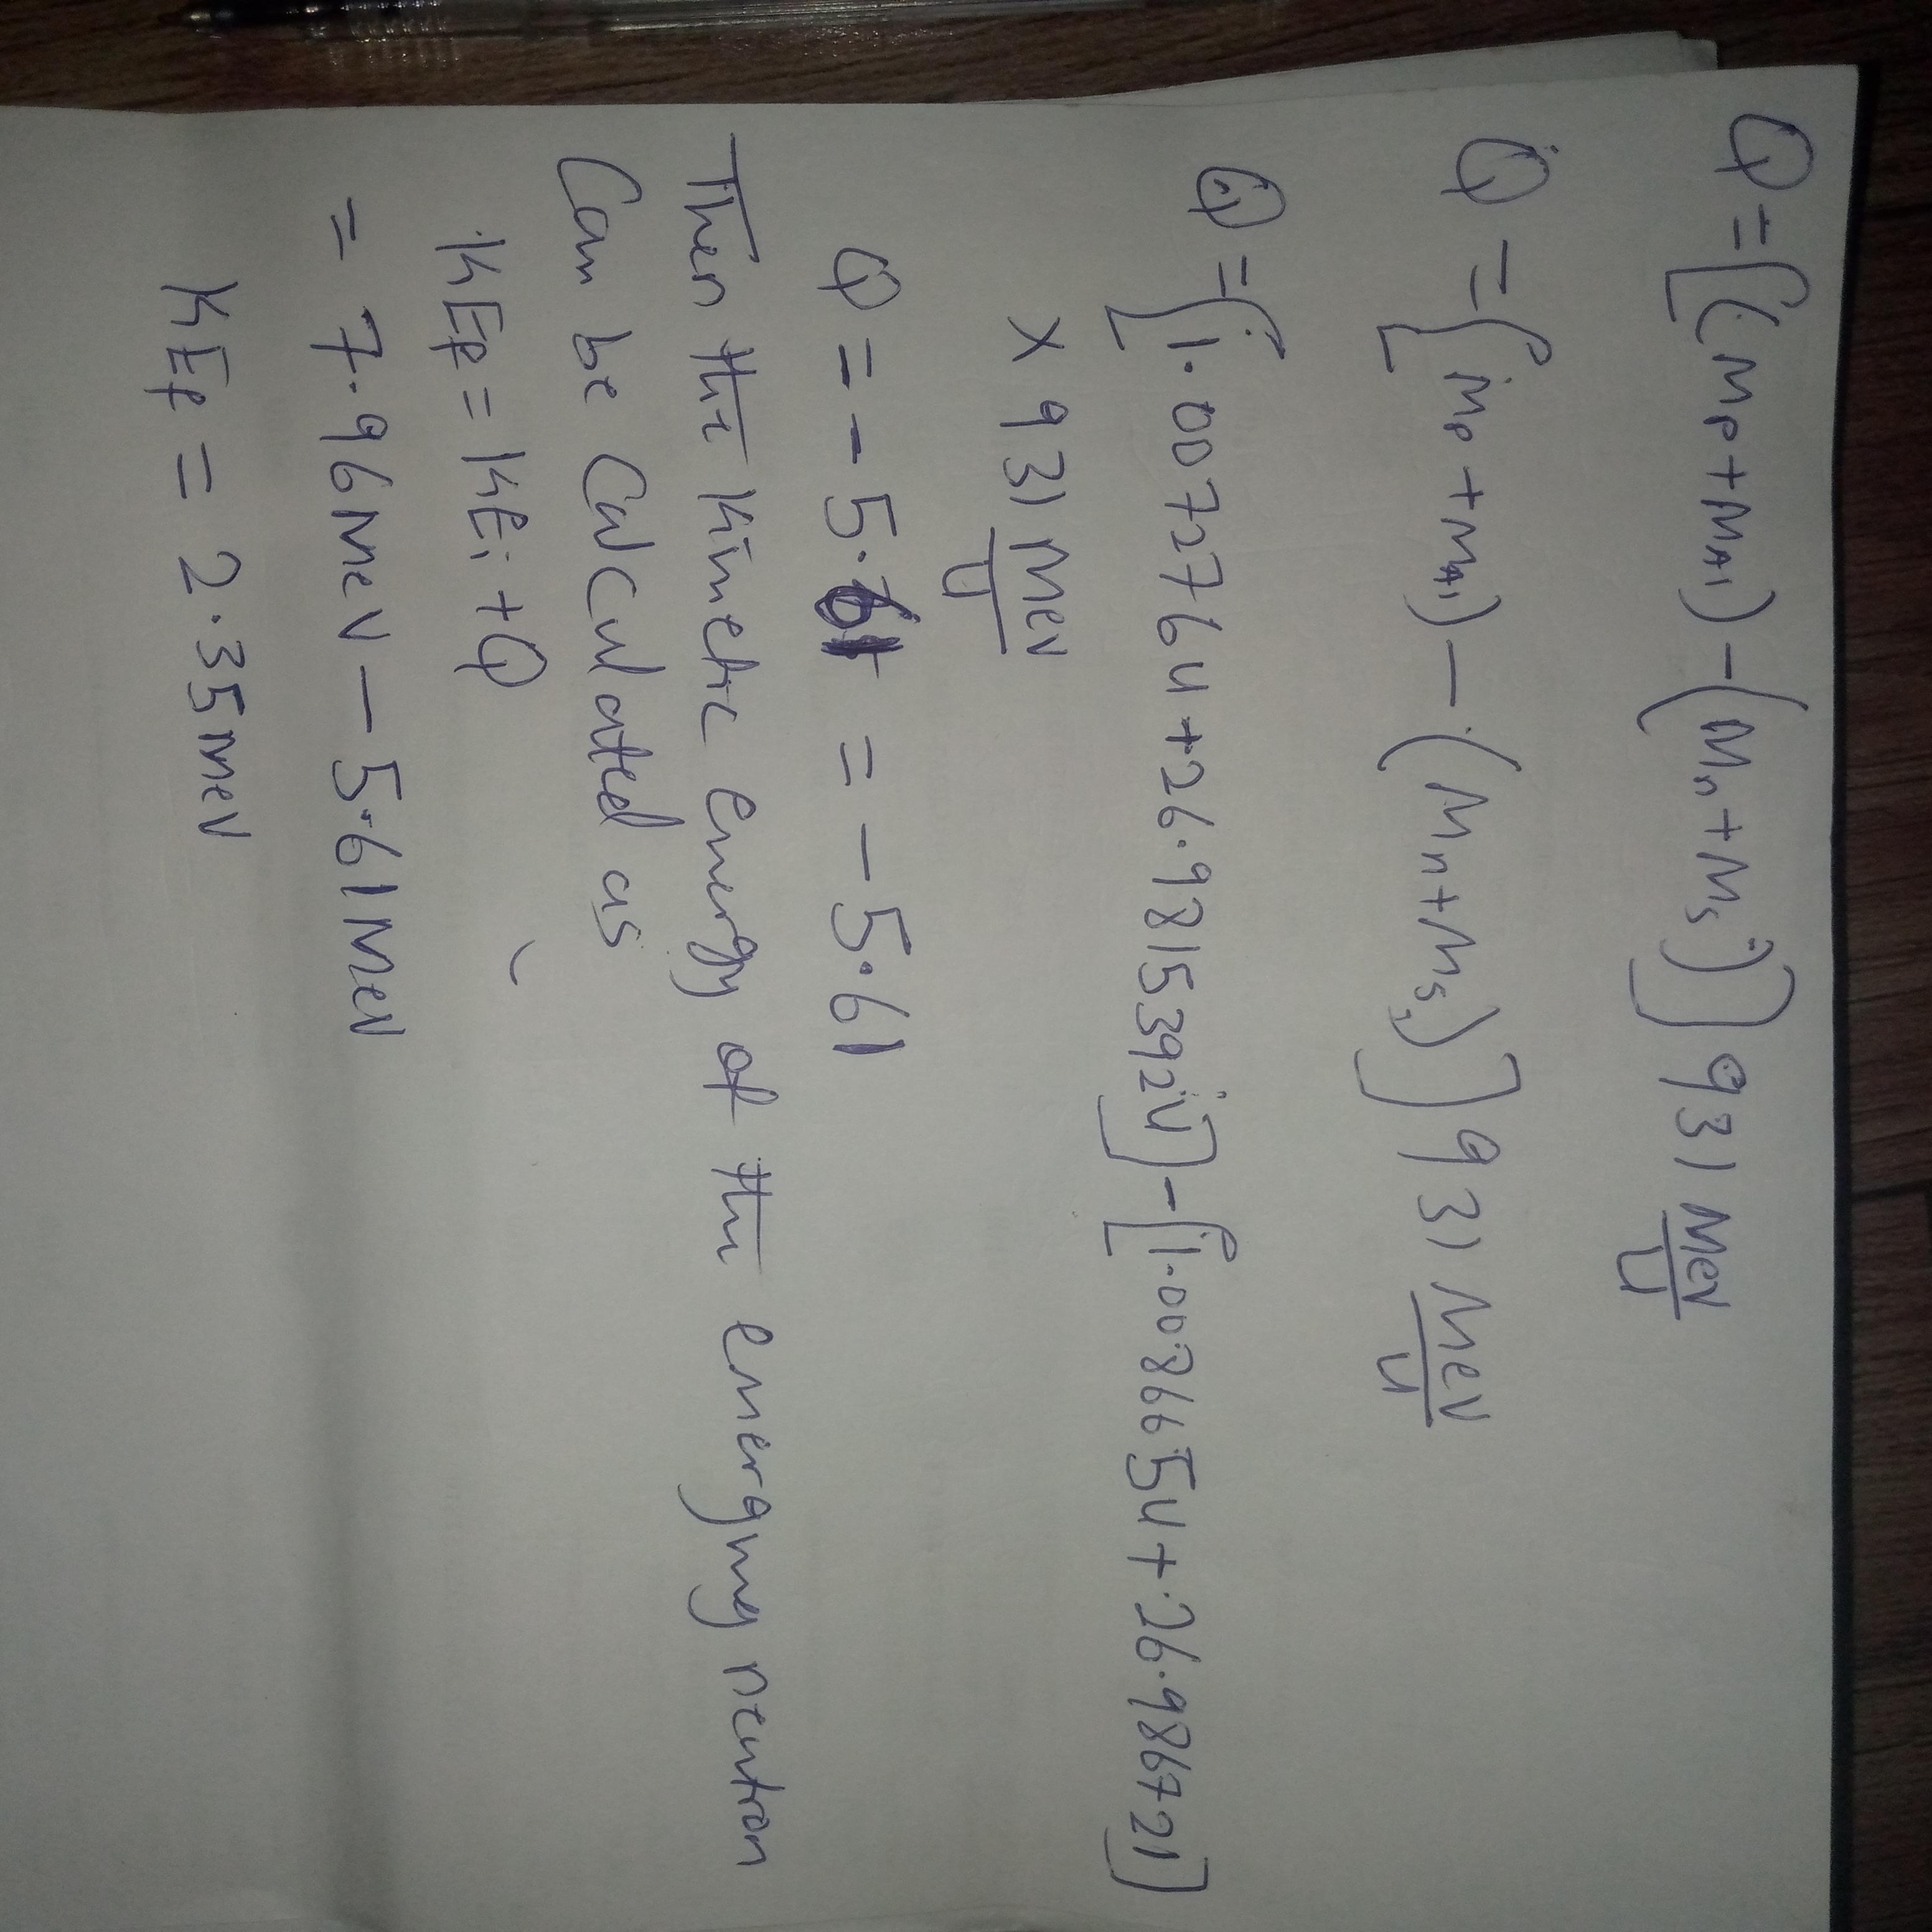 Q = [(Mp + MAl) - (Mn + Msi)] 931 MeV/U
Q = [Mp + MAl) - (Mn + Msi)] 931 MeV/U
Q = [1.007276u + 26.9815392u] - [1.008665u + 26.986721]
x 931 MeV/U
Q = - 5.61 = - 5.61
Then the kinetic energy of the energing neutron
Can be Calculated as
KEf = KEi + Q
= 7.96MeV - 5.61MeV
KEf = 2.35MeV